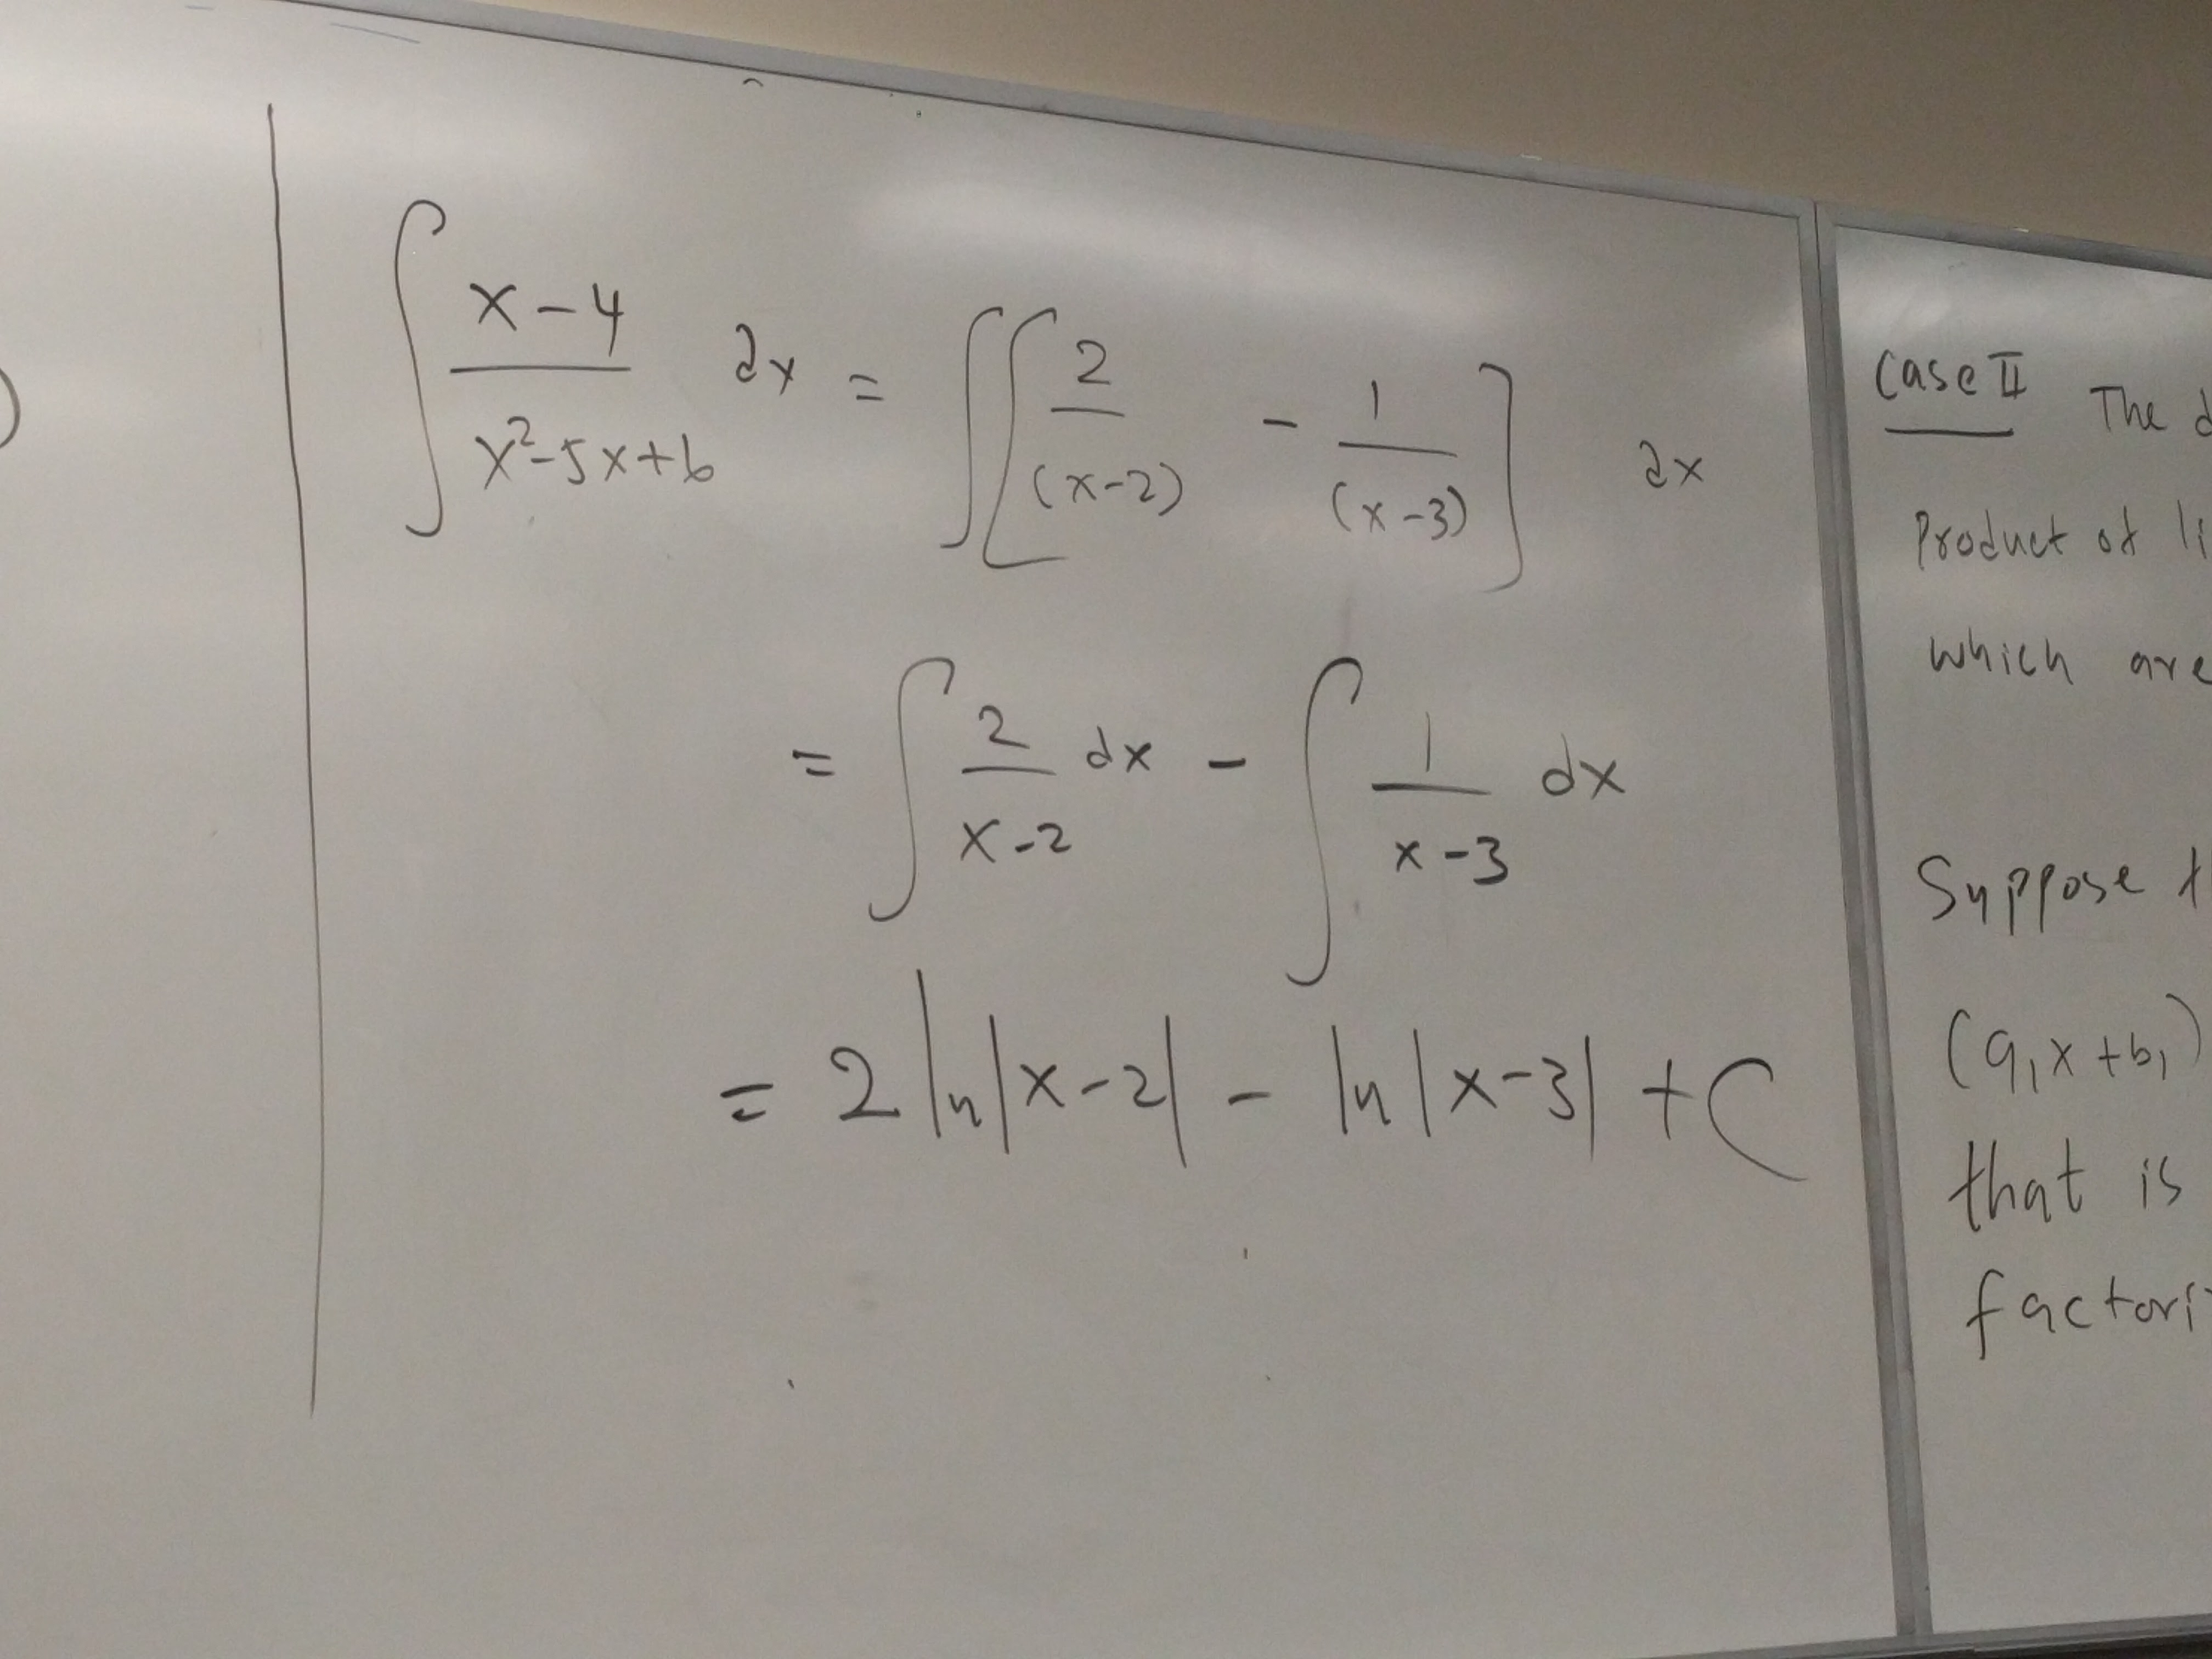 ∫ (x-4)/(x²-5x+6) dx = ∫ [ 2/(x-2) - 1/(x-3) ] dx
= ∫ 2/(x-2) dx - ∫ 1/(x-3) dx
= 2 ln|x-2| - ln|x-3| + C
Case II The
Product of
which are
Suppose
(a₁x+b₁)
that is